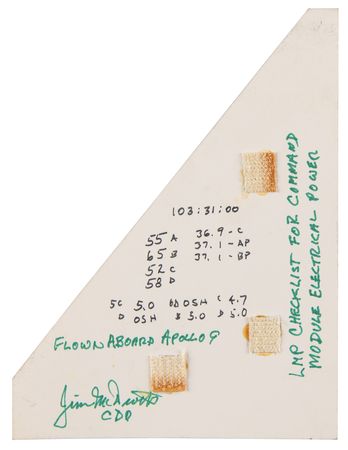 103:31:00
55 A 36.9-C
65 B 37.1-AP
52 C 37.1-BP
58 D
5C 5.0 6D OSH C 4.7
D OSH B 5.0 D 5.0
FLOWN ABOARD APOLLO 9
Jim McDivitt
CDR
LMP CHECKLIST FOR COMMAND
MODULE ELECTRICAL POWER